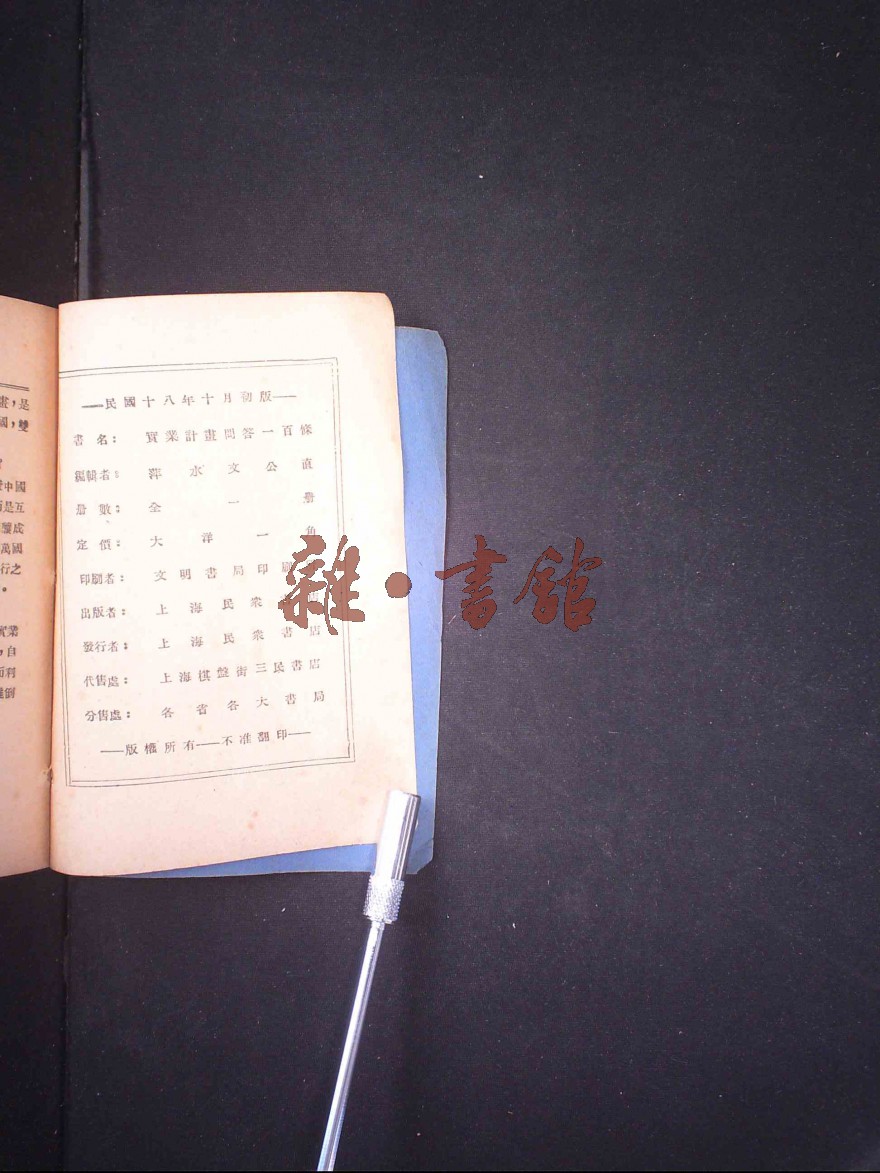 畫，是
國，雙
中國
是互
釀成
萬國
行之
。
實業
，自
而利
倒
——民國十八年十月初版——
書名：實業計畫問答一百條
編輯者：萍水文公直
册數：全一册
定價：大洋一角
印刷者：文明書局印刷
出版者：上海民衆
發行者：上海民衆書店
代售處：上海棋盤街三民書店
分售處：各省各大書局
——版權所有——不准翻印——
雜·書館